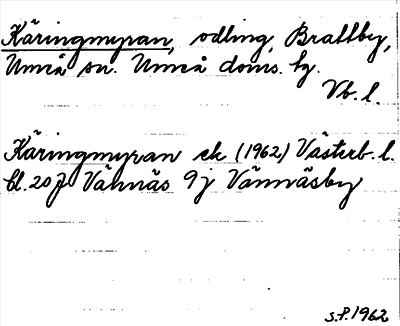 Käringmyran, odling, Brattby,
Umeå sn. Umeå doms. hg.
Vb. l.
Käringmyran ek (1962) Västerb. l.
bl. 20 J Vännäs 9 j Vännäsby
S.P. 1962